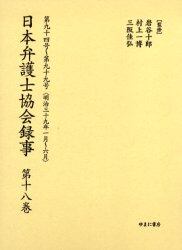 【監修】
岩谷十郎
村上一博
三阪佳弘
第九十四号～第九十九号（明治三十九年一月～六月）
日本弁護士協会録事
第十八巻
ゆまに書房